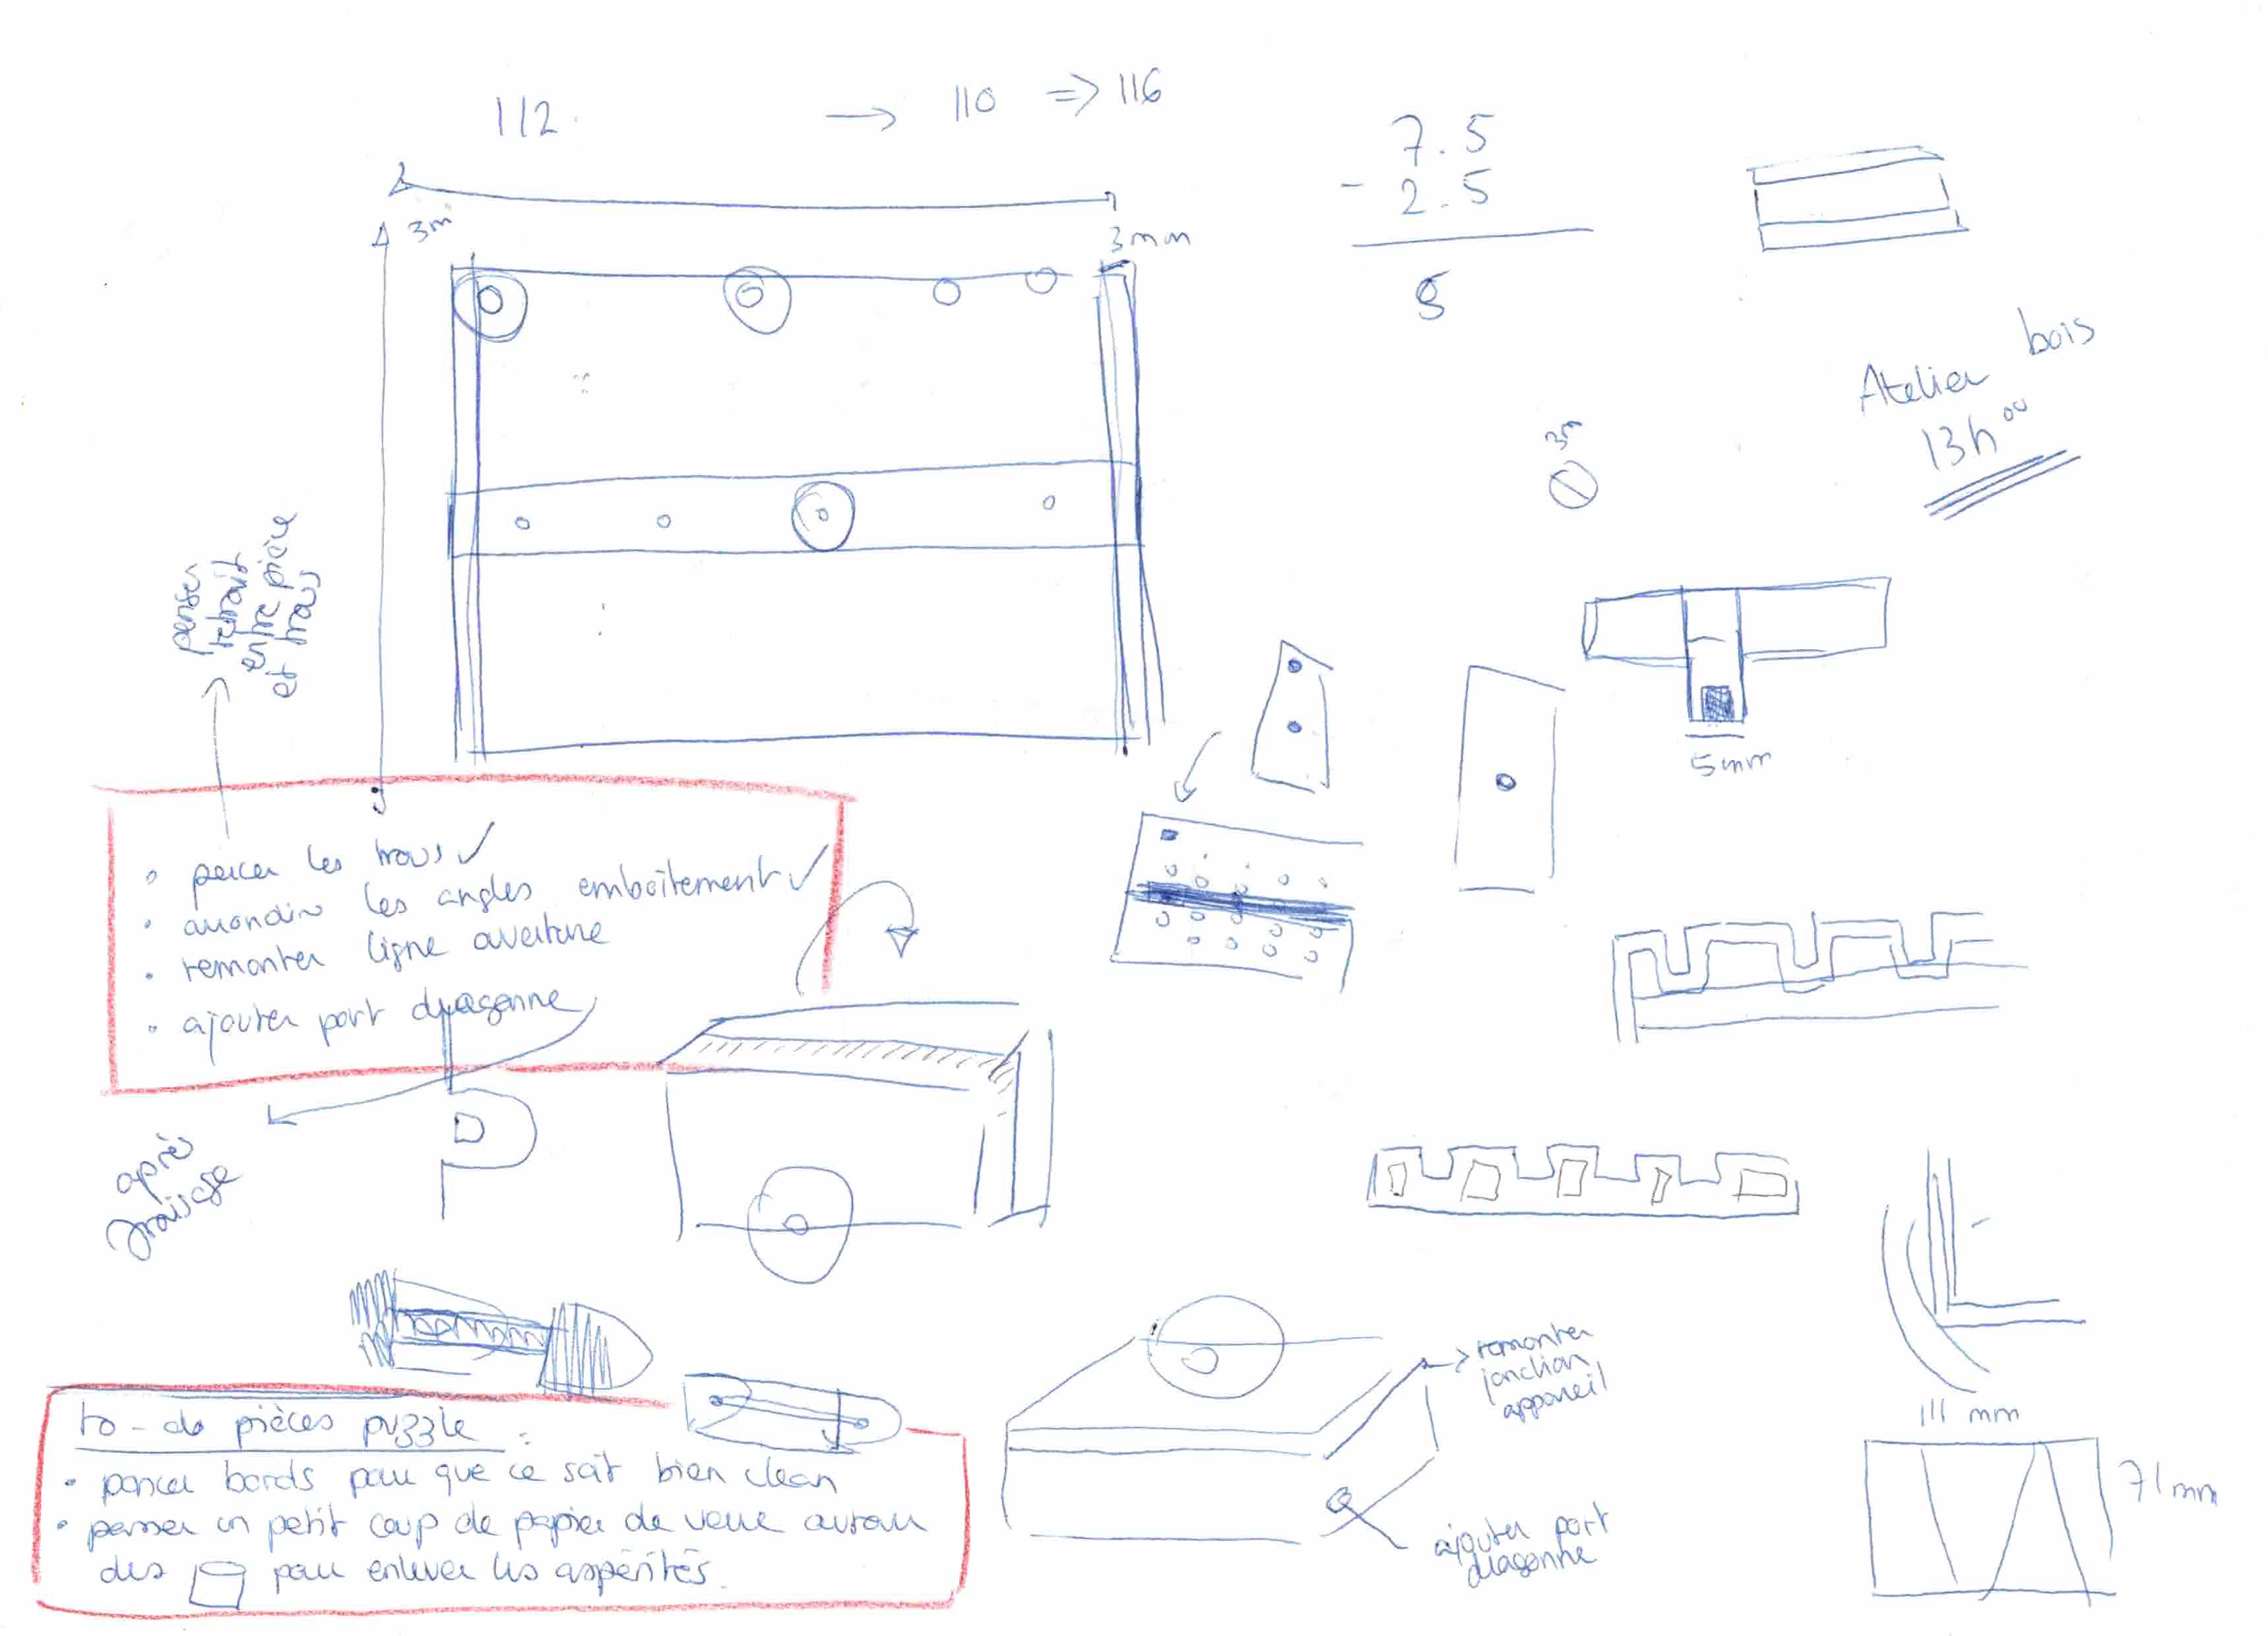 112 → 110 ⇒ 116
7.5
- 2.5
5
3m
3mm
Atelier bois
13h00
3m
5mm
penser
retrait
entre pièce
et trous
• percer les trous ✓
• arrondir les angles emboîtement ✓
• remonter ligne ouverture
• ajouter port dragonne
après
fraisage
to-do pièces puzzle :
• poncer bords pour que ce soit bien clean
• passer un petit coup de papier de verre autour
des pour enlever les aspérités.
→ remonter
jonction
appareil
ajouter port
dragonne
111 mm
71mm